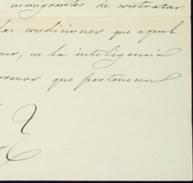 inmigrantes de contratar
las condiciones que aquel
en la inteligencia
que pertenecen